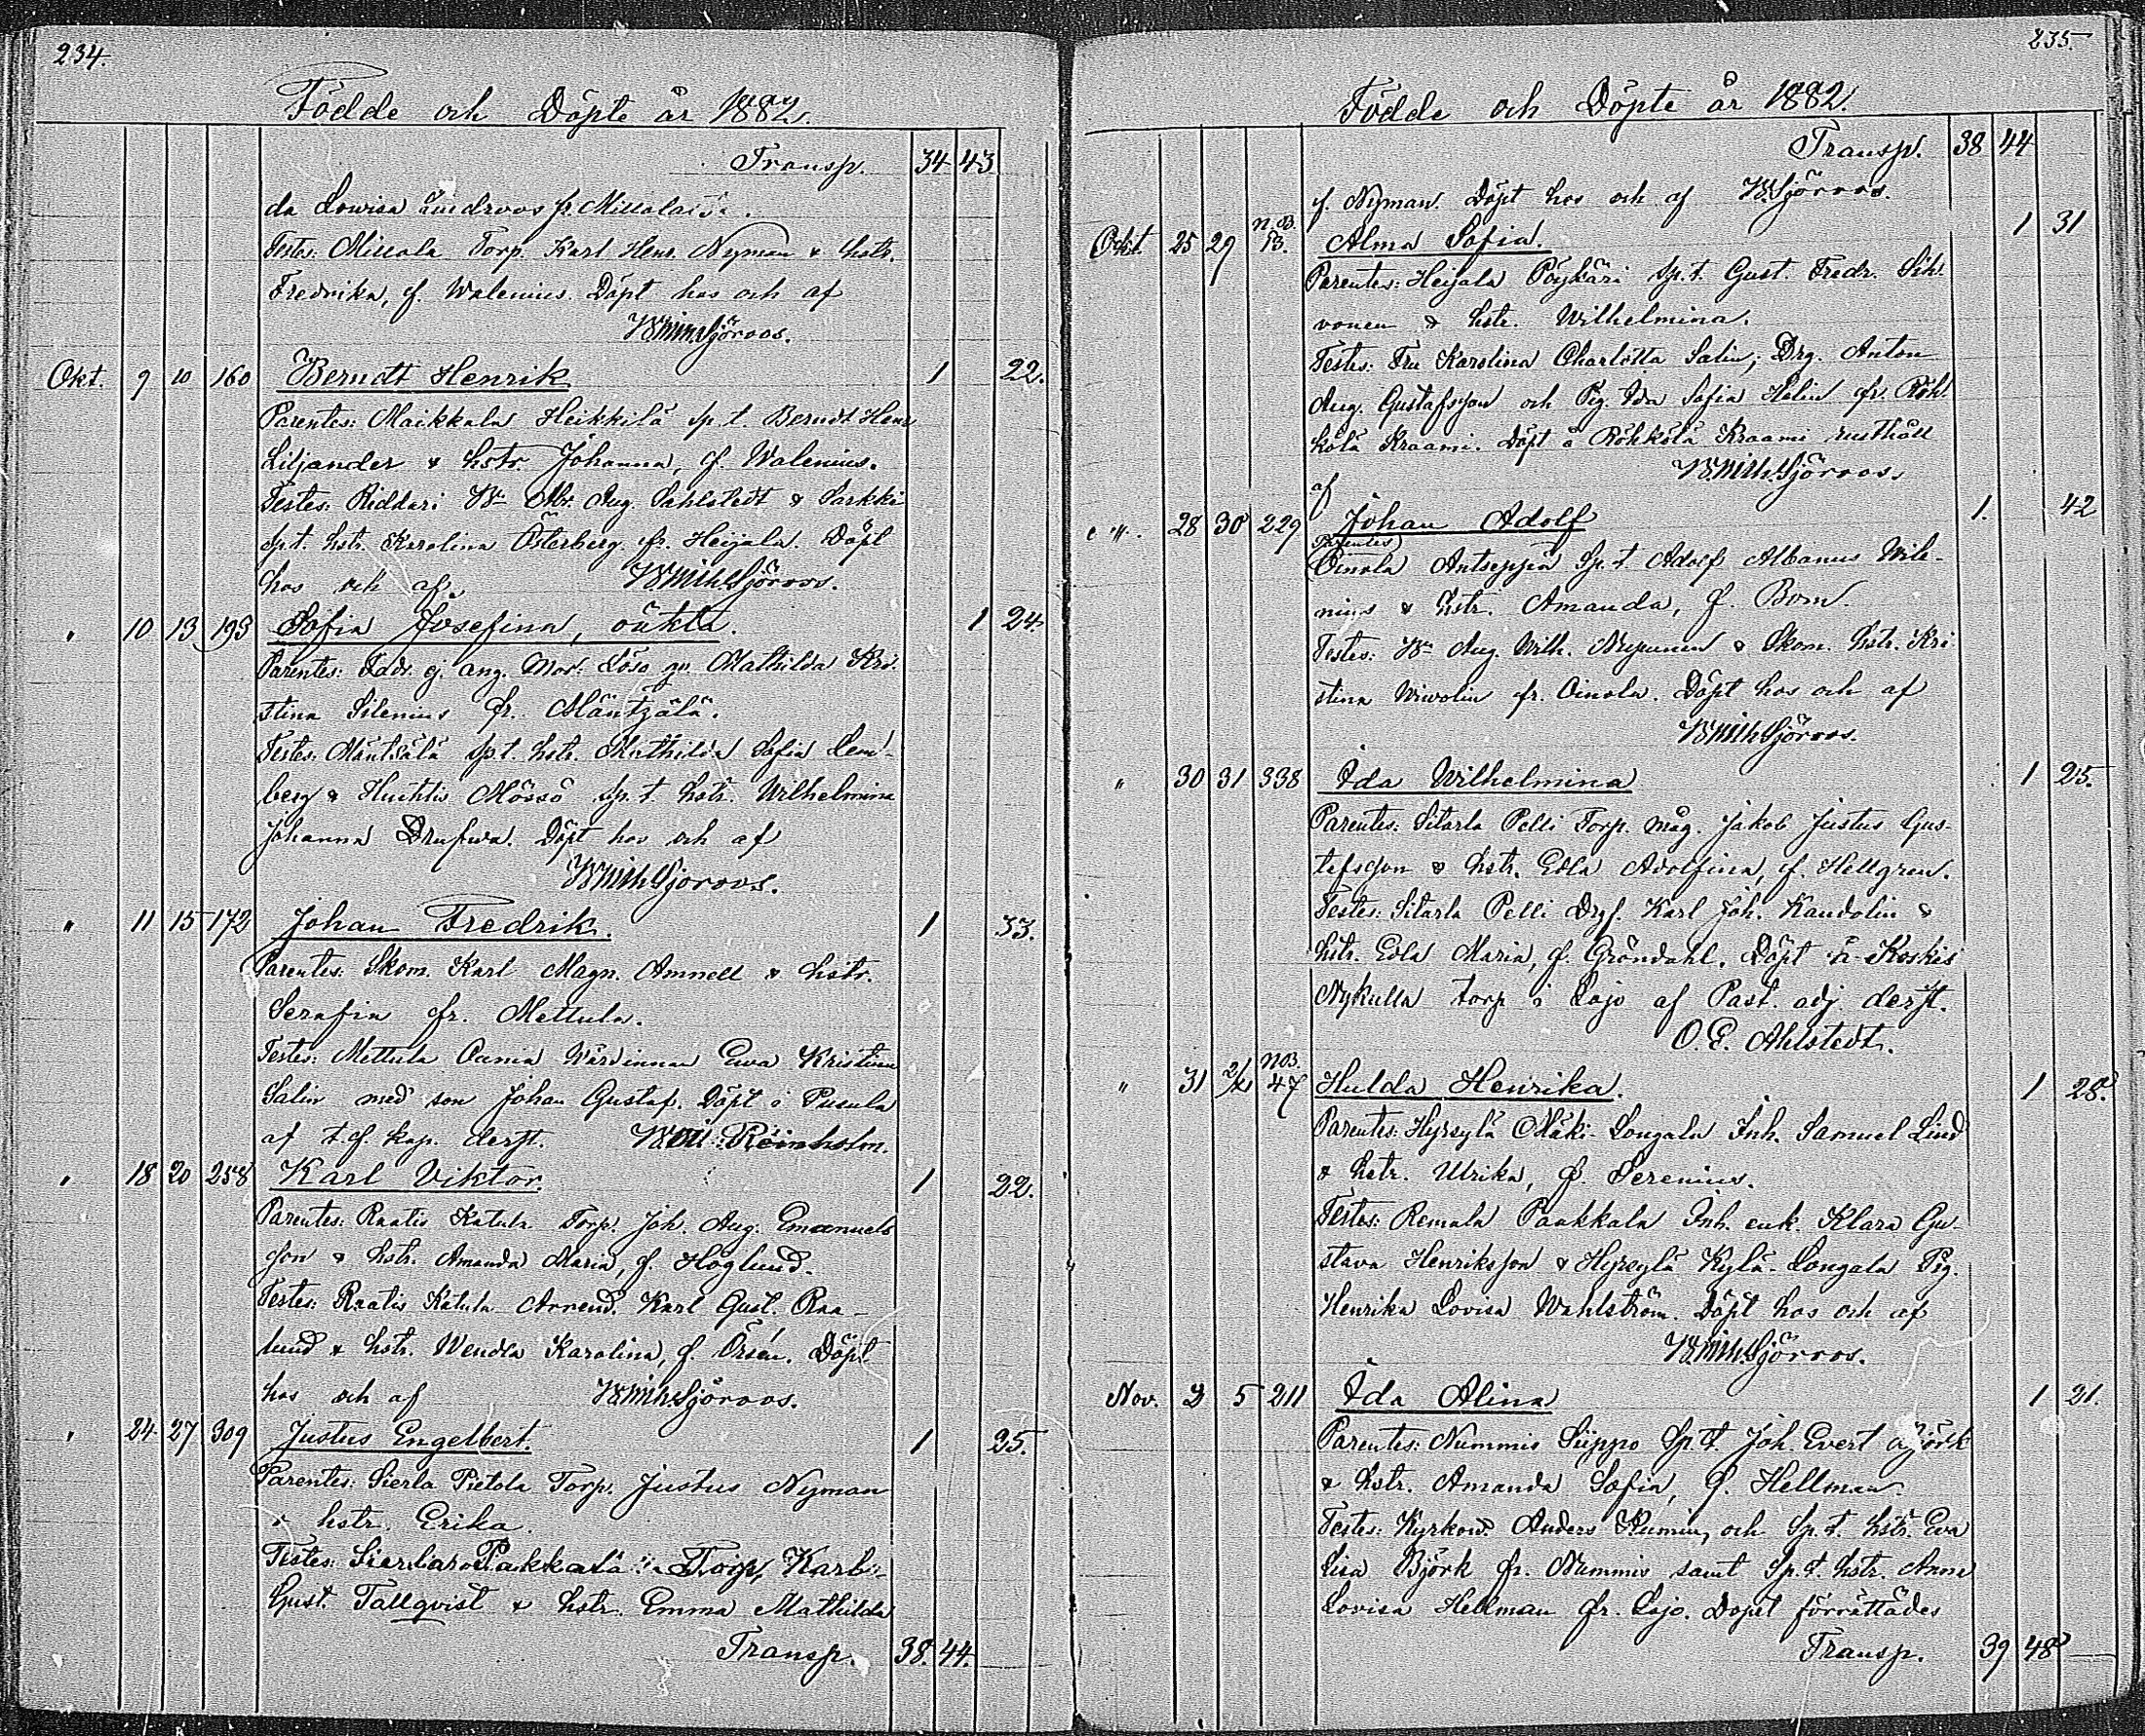 234.
Födde och Döpte år 1882.
Transp. 34 43
da Lowisa Lindroos fr. Millola
Testes: Millola Torp. Karl Henr. Nyman & hstr.
Fredrika, f. Walenius. Döpt hos och af
Wilh. Sjöroos.
Okt. 9 10 160 Berndt Henrik 1 22.
Parentes: Maikkala Heikkilä sp.t. Berndt Henr
Liljander & hstr. Johanna, f. Walenius.
Testes: Riddari Aug. Sahlstedt & Sarkki
sp.t. hstr. Karolina Österberg fr. Heijala. Döpt
hos och af Wilh. Sjöroos.
" 10 13 193 Sofia Josefina, oäkta. 1 24.
Parentes: Fadr. ej ang. Mor: Lösa qv. Mathilda Kri-
stina Silenius fr. Mäntzälä.
Testes: Mäntsälä sp.t. hstr. Mathilda Sofia Lem-
berg & Huhtis Mössö sp.t. hstr. Wilhelmina
Johanna Drufwa. Döpt hos och af
Wilh. Sjöroos.
" 11 15 172 Johan Fredrik. 1 33.
Parentes: Skom. Karl Magn. Amnell & hstr.
Serafia fr. Mettula.
Testes: Mettula Wärdinnan Ewa Kristina
Salin med son Johan Gustaf. Döpt i Pusula
af t.f. kap. derst. Reinholm.
" 18 20 258 Karl Viktor. 1 22.
Parentes: Raatis Katula Torp. Joh. Aug. Emanuels
son & hstr. Amanda Maria, f. Höglund.
Testes: Raatis Katula Arrend. Karl Gust. Raa-
lund & hstr. Wendla Karolina, f. Örsén. Döpt
hos och af Wilh. Sjöroos.
" 24 27 309 Justus Engelbert. 1 25.
Parentes: Sierla Pietola Torp. Justus Nyman
& hstr. Erika.
Testes: Pakkala Torp. Karl
Gust. Tallqvist & hstr. Emma Mathilda
Transp. 38. 44.
235.
Födde och Döpte år 1882.
Transp. 38 44
f. Nyman. Döpt hos och af W. Sjöroos.
Okt. 25 29 N.B. 13. Alma Sofia. 1 31
Parentes: Heijala Pöykäri Sp.t. Gust. Fredr. Sih-
vonen & hstr. Wilhelmina.
Testes: Fru Karolina Charlotta Salin, Drg. Anton
Aug. Gustafsson och Pig. Ida Sofia Helin fr. Röh-
kölä Kraami. Döpt å Röhkölä Kraami rusthåll
af Wilh. Sjöroos.
" 28 30 229 Johan Adolf 1. 42
Parentes:
Oinola Antseppia Sp.t. Adolf Albanus Wile-
nius & hstr. Amanda, f. Bom.
Testes: Aug. Wilh. & Skom. hstr. Kri
stina Wiwolin fr. Oinola. Döpt hos och af
Wilh. Sjöroos.
" 30 31 338 Ida Wilhelmina 1 25.
Parentes: Sitarla Pelli Torp. måg. Jakob Justus Gus-
tafsson & hstr. Edla Adolfina, f. Hellgren.
Testes: Sitarla Pelli Drgf. Karl Joh. Kandolin &
hstr. Edla Maria, f. Gröndahl. Döpt å Koskis
Nykulla torp i Lojo af Past. adj. derst.
O. E. Ahlstedt.
" 31 2/XI N.B. 47 Hulda Henrika. 1 28.
Parentes: Hyrsylä Mäki-Longala Inh. Samuel Lind
& hstr. Ulrika, f. Serenius.
Testes: Remala Paakkala Inh. enk. Klara Gu-
stava Henriksson & Hyrsylä Kylä-Longala Pig.
Henrika Lovisa Wahlström. Döpt hos och af
Wilh. Sjöroos.
Nov. 2 5 211 Ida Alina 1 21.
Parentes: Nummis Siippo Sp.t. Joh. Evert Björk
& hstr. Amanda Sofia, f. Hellman.
Testes: Kyrkow. Anders och Sp.t. hstr. Eva
Lisa Björk fr. Nummis samt Sp.t. hstr. Anna
Lovisa Hellman fr. Lojo. Dopet förrättades
Transp. 39 48